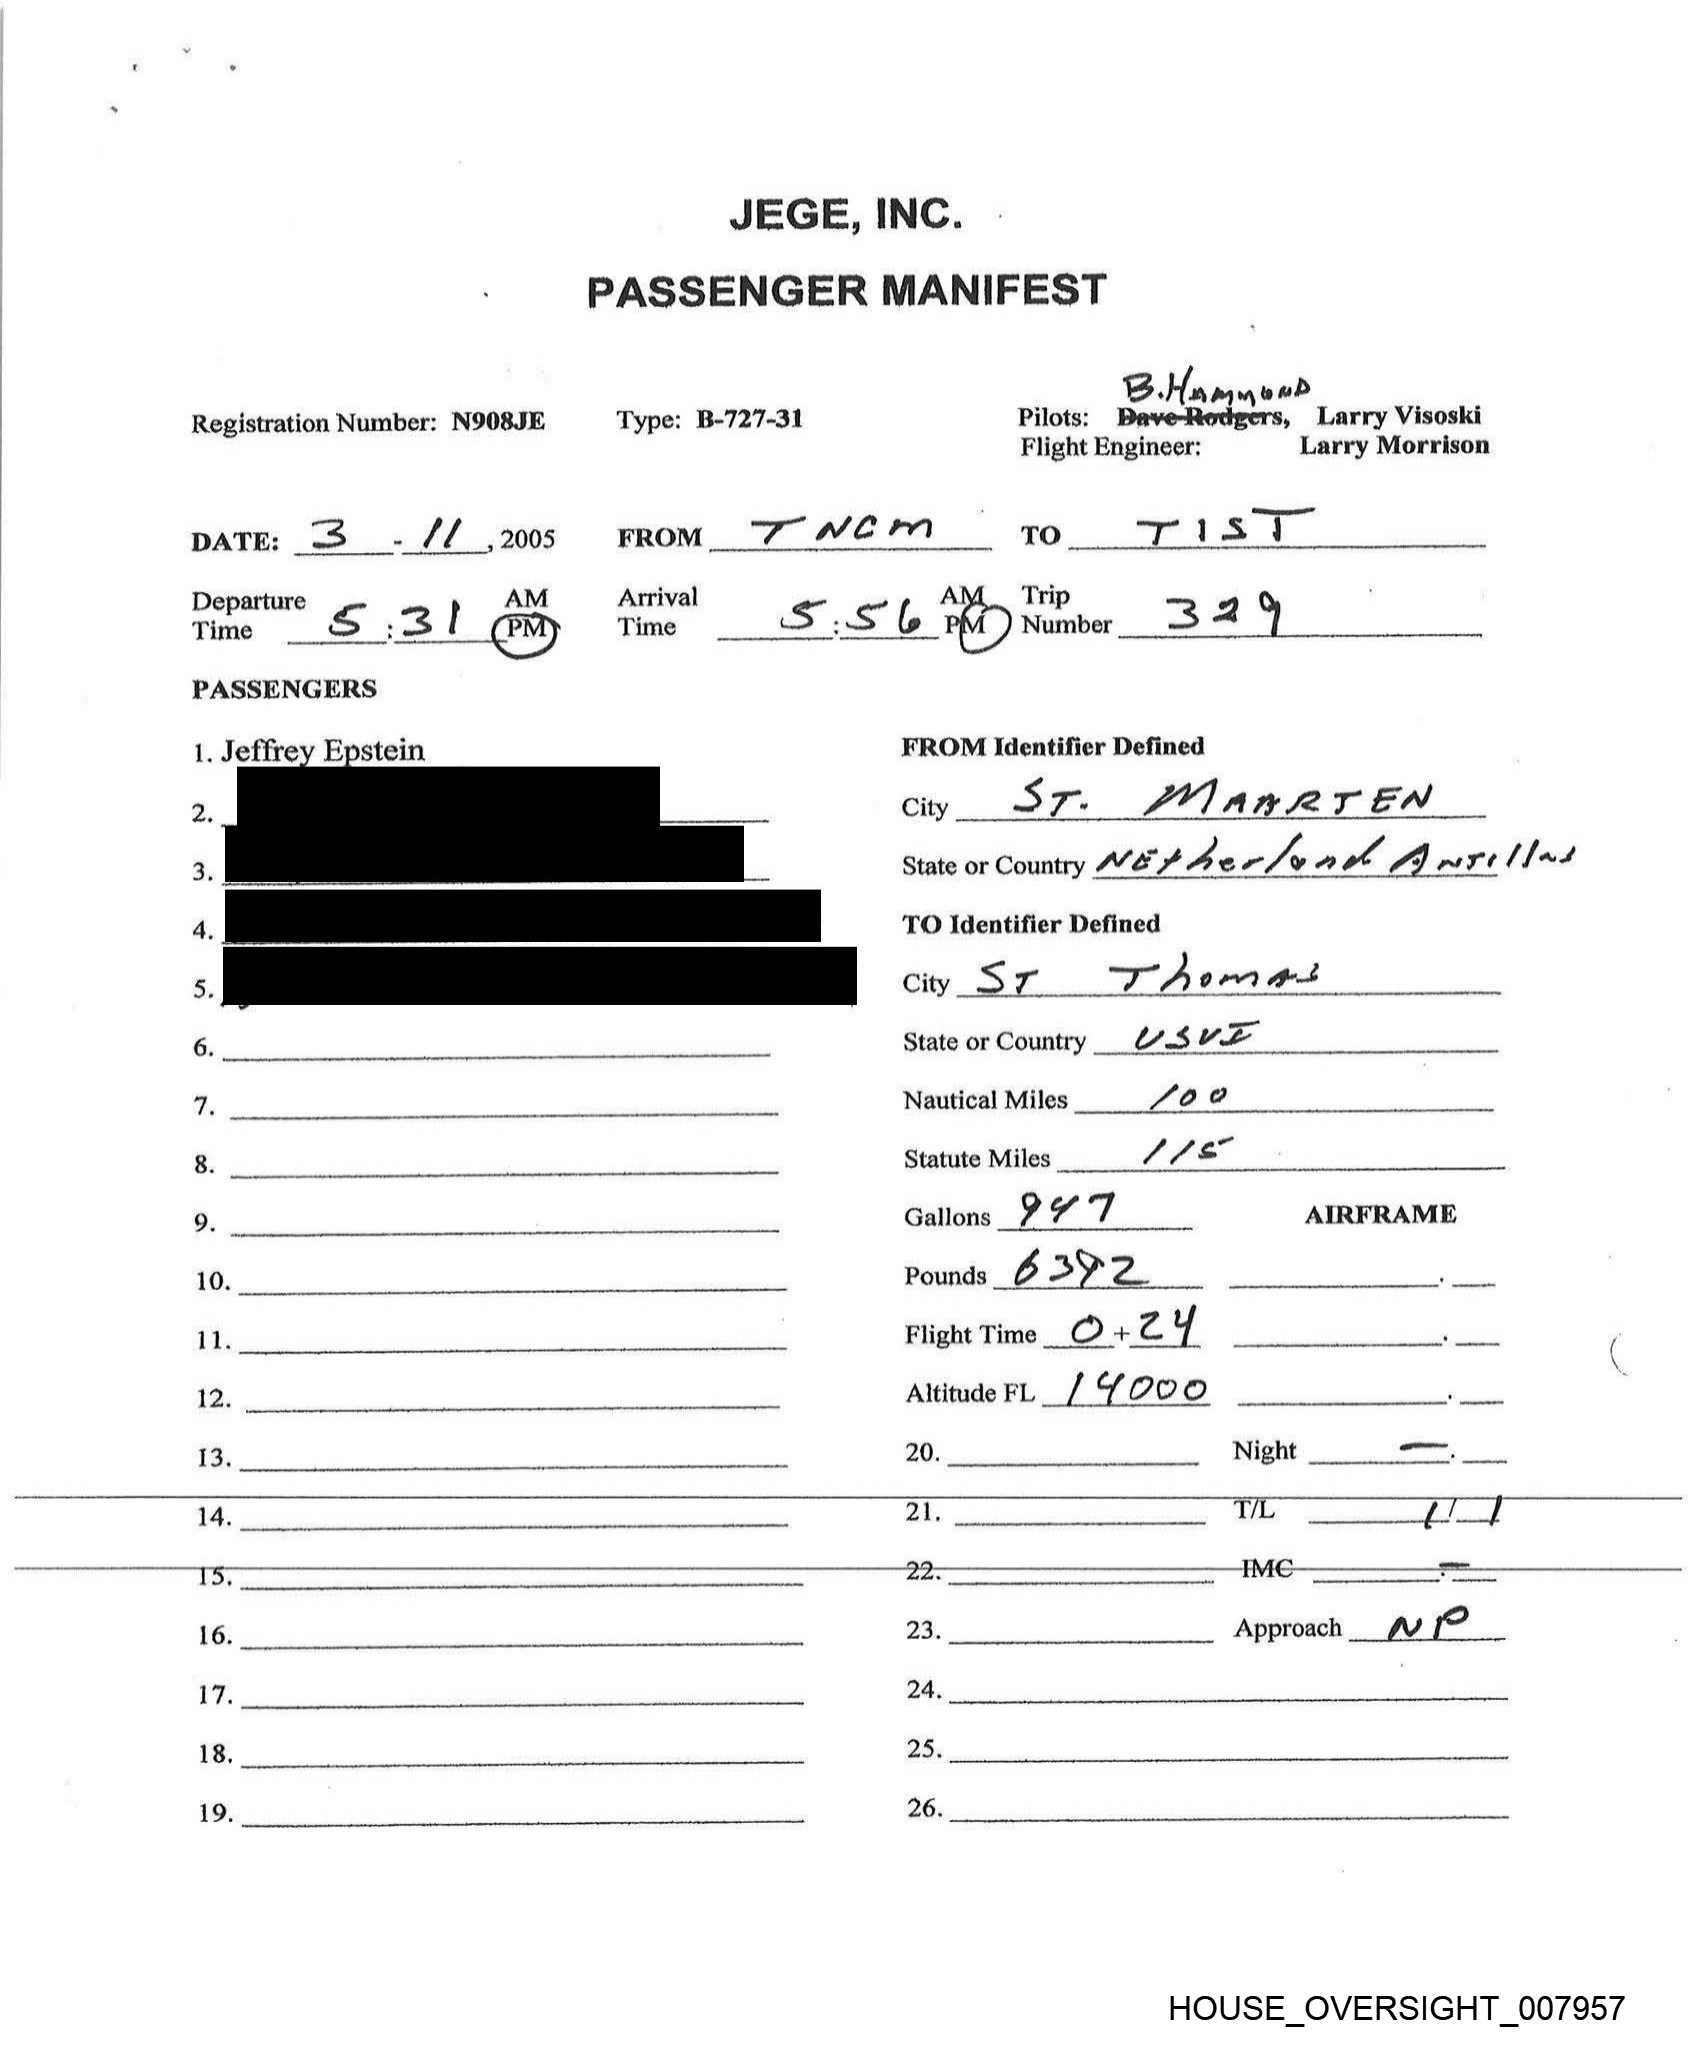 JEGE, INC.
PASSENGER MANIFEST
B. Hammond
Registration Number: N908JE Type: B-727-31 Pilots: Dave Rodgers, Larry Visoski
Flight Engineer: Larry Morrison
DATE: 3 - 11, 2005 FROM TNCM TO TIST
Departure Time 5:31 AM PM Arrival Time 5:56 AM PM Trip Number 329
PASSENGERS
1. Jeffrey Epstein
2.
3.
4.
5.
6.
7.
8.
9.
10.
11.
12.
13.
14.
15.
16.
17.
18.
19.
FROM Identifier Defined
City ST. MAARTEN
State or Country Netherland Antilles
TO Identifier Defined
City ST Thomas
State or Country USVI
Nautical Miles 100
Statute Miles 115
Gallons 947 AIRFRAME
Pounds 6392
Flight Time 0+24
Altitude FL 14000
20. Night —.
21. T/L 1/1
22. IMC .—
23. Approach NP
24.
25.
26.
HOUSE_OVERSIGHT_007957